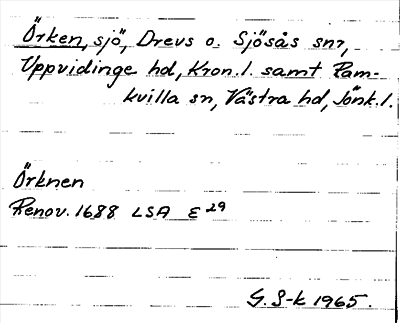 Örken, sjö, Drevs o. Sjösås snr,
Uppvidinge hd, Kron.l. samt Ram-
kvilla sn, Västra hd, Jönk.l.
Örknen
Renov. 1688 LSA E 29
G. S-k 1965.